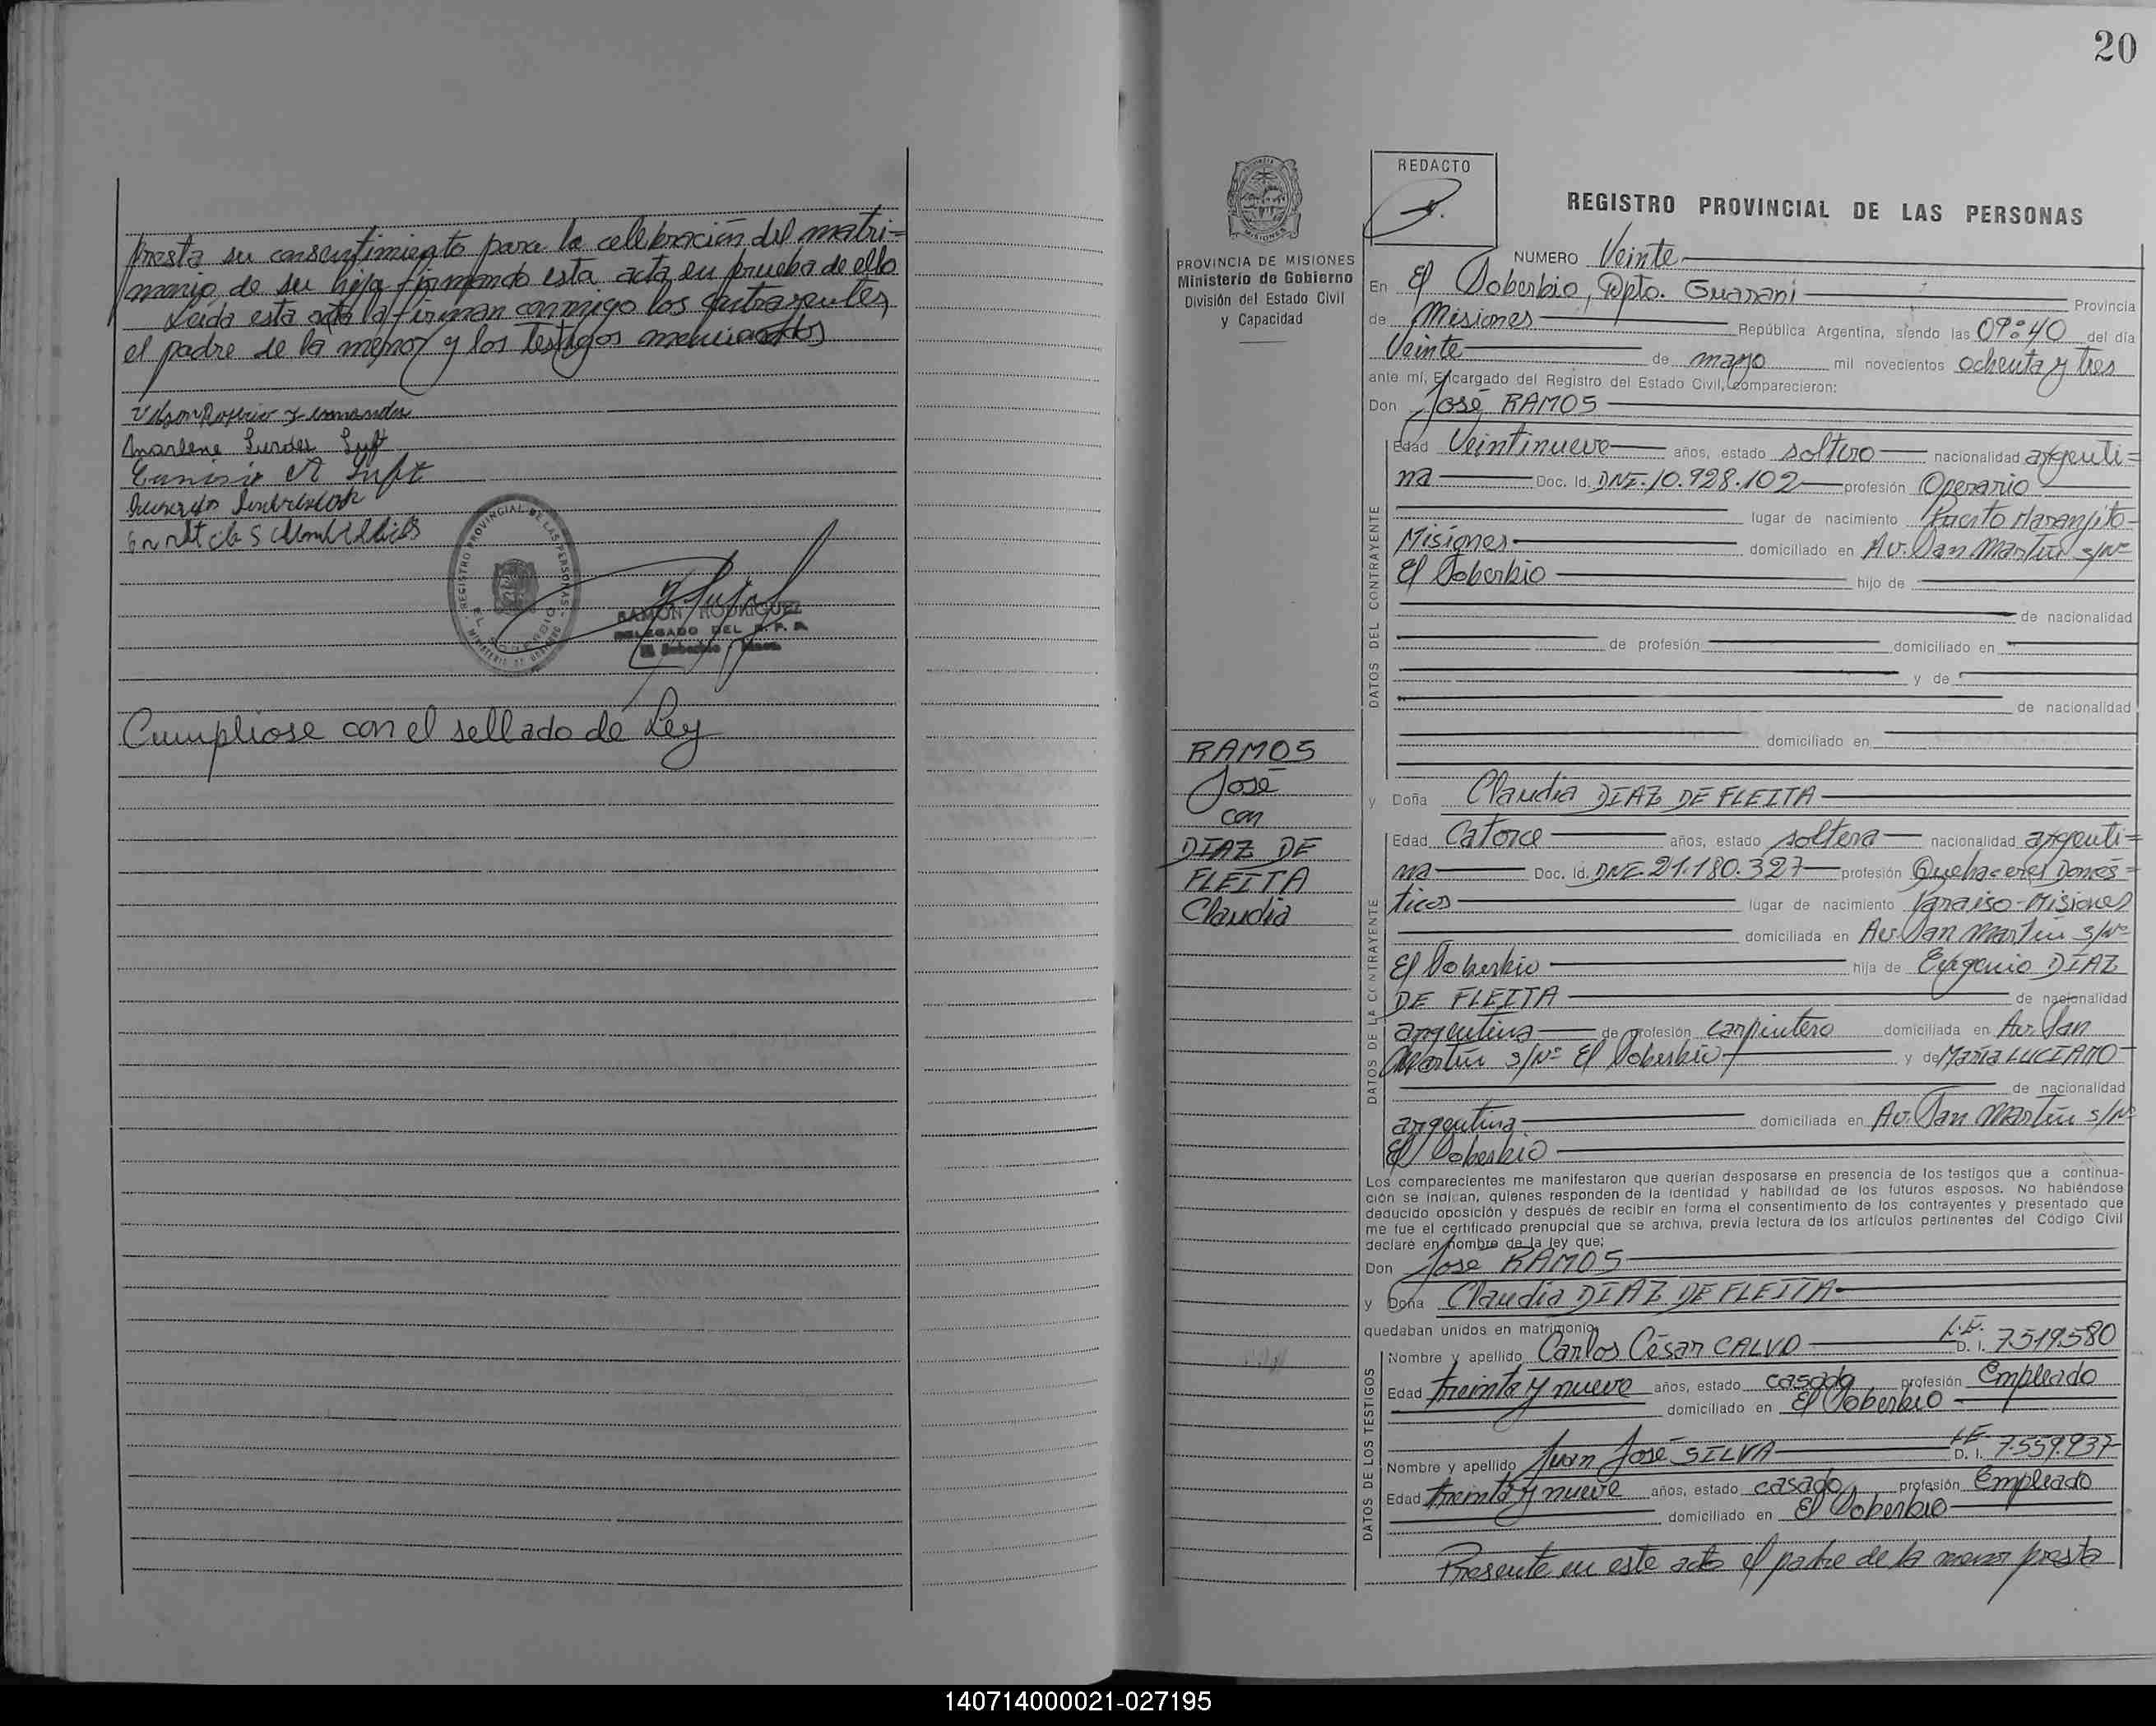 presta su consentimiento para la celebración del matri=
monio de su hija firmando esta acta en prueba de ello
Leida esta acta la firman conmigo los contrayentes,
el padre de la menor y los Testigos mencionados
Marlene Lurdes Luft
REGISTRO PROVINCIAL DE LAS PERSONAS
RAMON RODRIGUEZ
DELEGADO DEL R. P. P.
El Soberbio - Mnes.
Cumpliose con el sellado de Ley
20
REDACTO
REGISTRO PROVINCIAL DE LAS PERSONAS
PROVINCIA DE MISIONES
Ministerio de Gobierno
División del Estado Civil
y Capacidad
RAMOS
José
con
DIAZ DE
FLEITA
Claudia
NUMERO Veinte
En El Soberbio, Dpto. Guarani Provincia
de Misiones República Argentina, siendo las 09:40 del día
Veinte de mayo mil novecientos ochenta y tres
ante mí, Encargado del Registro del Estado Civil, comparecieron:
Don José RAMOS
DATOS DEL CONTRAYENTE
Edad Veintinueve años, estado soltero nacionalidad argenti=
na Doc. Id. DNI. 10.928.102 profesión Operario
lugar de nacimiento Puerto Naranjito
Misiones domiciliado en Av. San Martín s/Nº
El Soberbio hijo de
de nacionalidad
de profesión domiciliado en
y de
de nacionalidad
domiciliado en
y Doña Claudia DIAZ DE FLEITA
DATOS DE LA CONTRAYENTE
Edad Catorce años, estado soltera nacionalidad argenti=
na Doc. Id. DNI. 21.180.327 profesión Quehaceres Domés=
ticos lugar de nacimiento Paraiso-Misiones
domiciliada en Av. San Martín s/Nº
El Soberbio hija de Eugenio DIAZ
DE FLEITA de nacionalidad
argentina de profesión carpintero domiciliada en Av. San
Martín s/Nº El Soberbio y de María LUCIANO
de nacionalidad
argentina domiciliada en Av. San Martín s/Nº
El Soberbio
Los comparecientes me manifestaron que querían desposarse en presencia de los testigos que a continua-
ción se indican, quienes responden de la identidad y habilidad de los futuros esposos. No habiéndose
deducido oposición y después de recibir en forma el consentimiento de los contrayentes y presentado que
me fue el certificado prenupcial que se archiva, previa lectura de los artículos pertinentes del Código Civil
declaré en nombre de la ley que:
Don José RAMOS
y Doña Claudia DIAZ DE FLEITA
quedaban unidos en matrimonio
DATOS DE LOS TESTIGOS
Nombre y apellido Carlos César CALVO L.E. D. I. 7.519.580
Edad treinta y nueve años, estado casado profesión Empleado
domiciliado en El Soberbio
Nombre y apellido Juan José SILVA L.E. D. I. 7.559.937
Edad treinta y nueve años, estado casado profesión Empleado
domiciliado en El Soberbio
Presente en este acto el padre de la menor presta
140714000021-027195